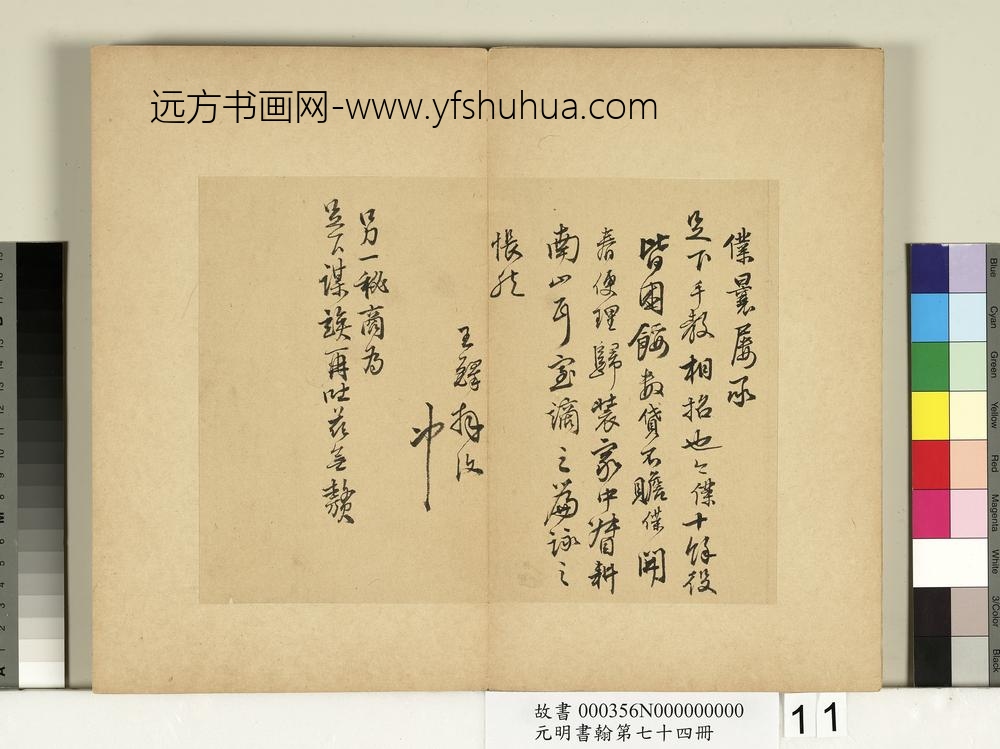 远方书画网-www.yfshuhua.com
僕曩屢承
足下手教相招也僕十餘役
皆困餒數貸不贍僕開
春便理歸裝家中督耕
南山耳室謫之篇詠之
悵然
王鐸拜汝
冲
另一秘商為
足下謀談再吐茲無贅
故書 000356N000000000
元明書翰第七十四冊
11
Blue
Cyan
Green
Yellow
Red
Magenta
White
3/Color
Black